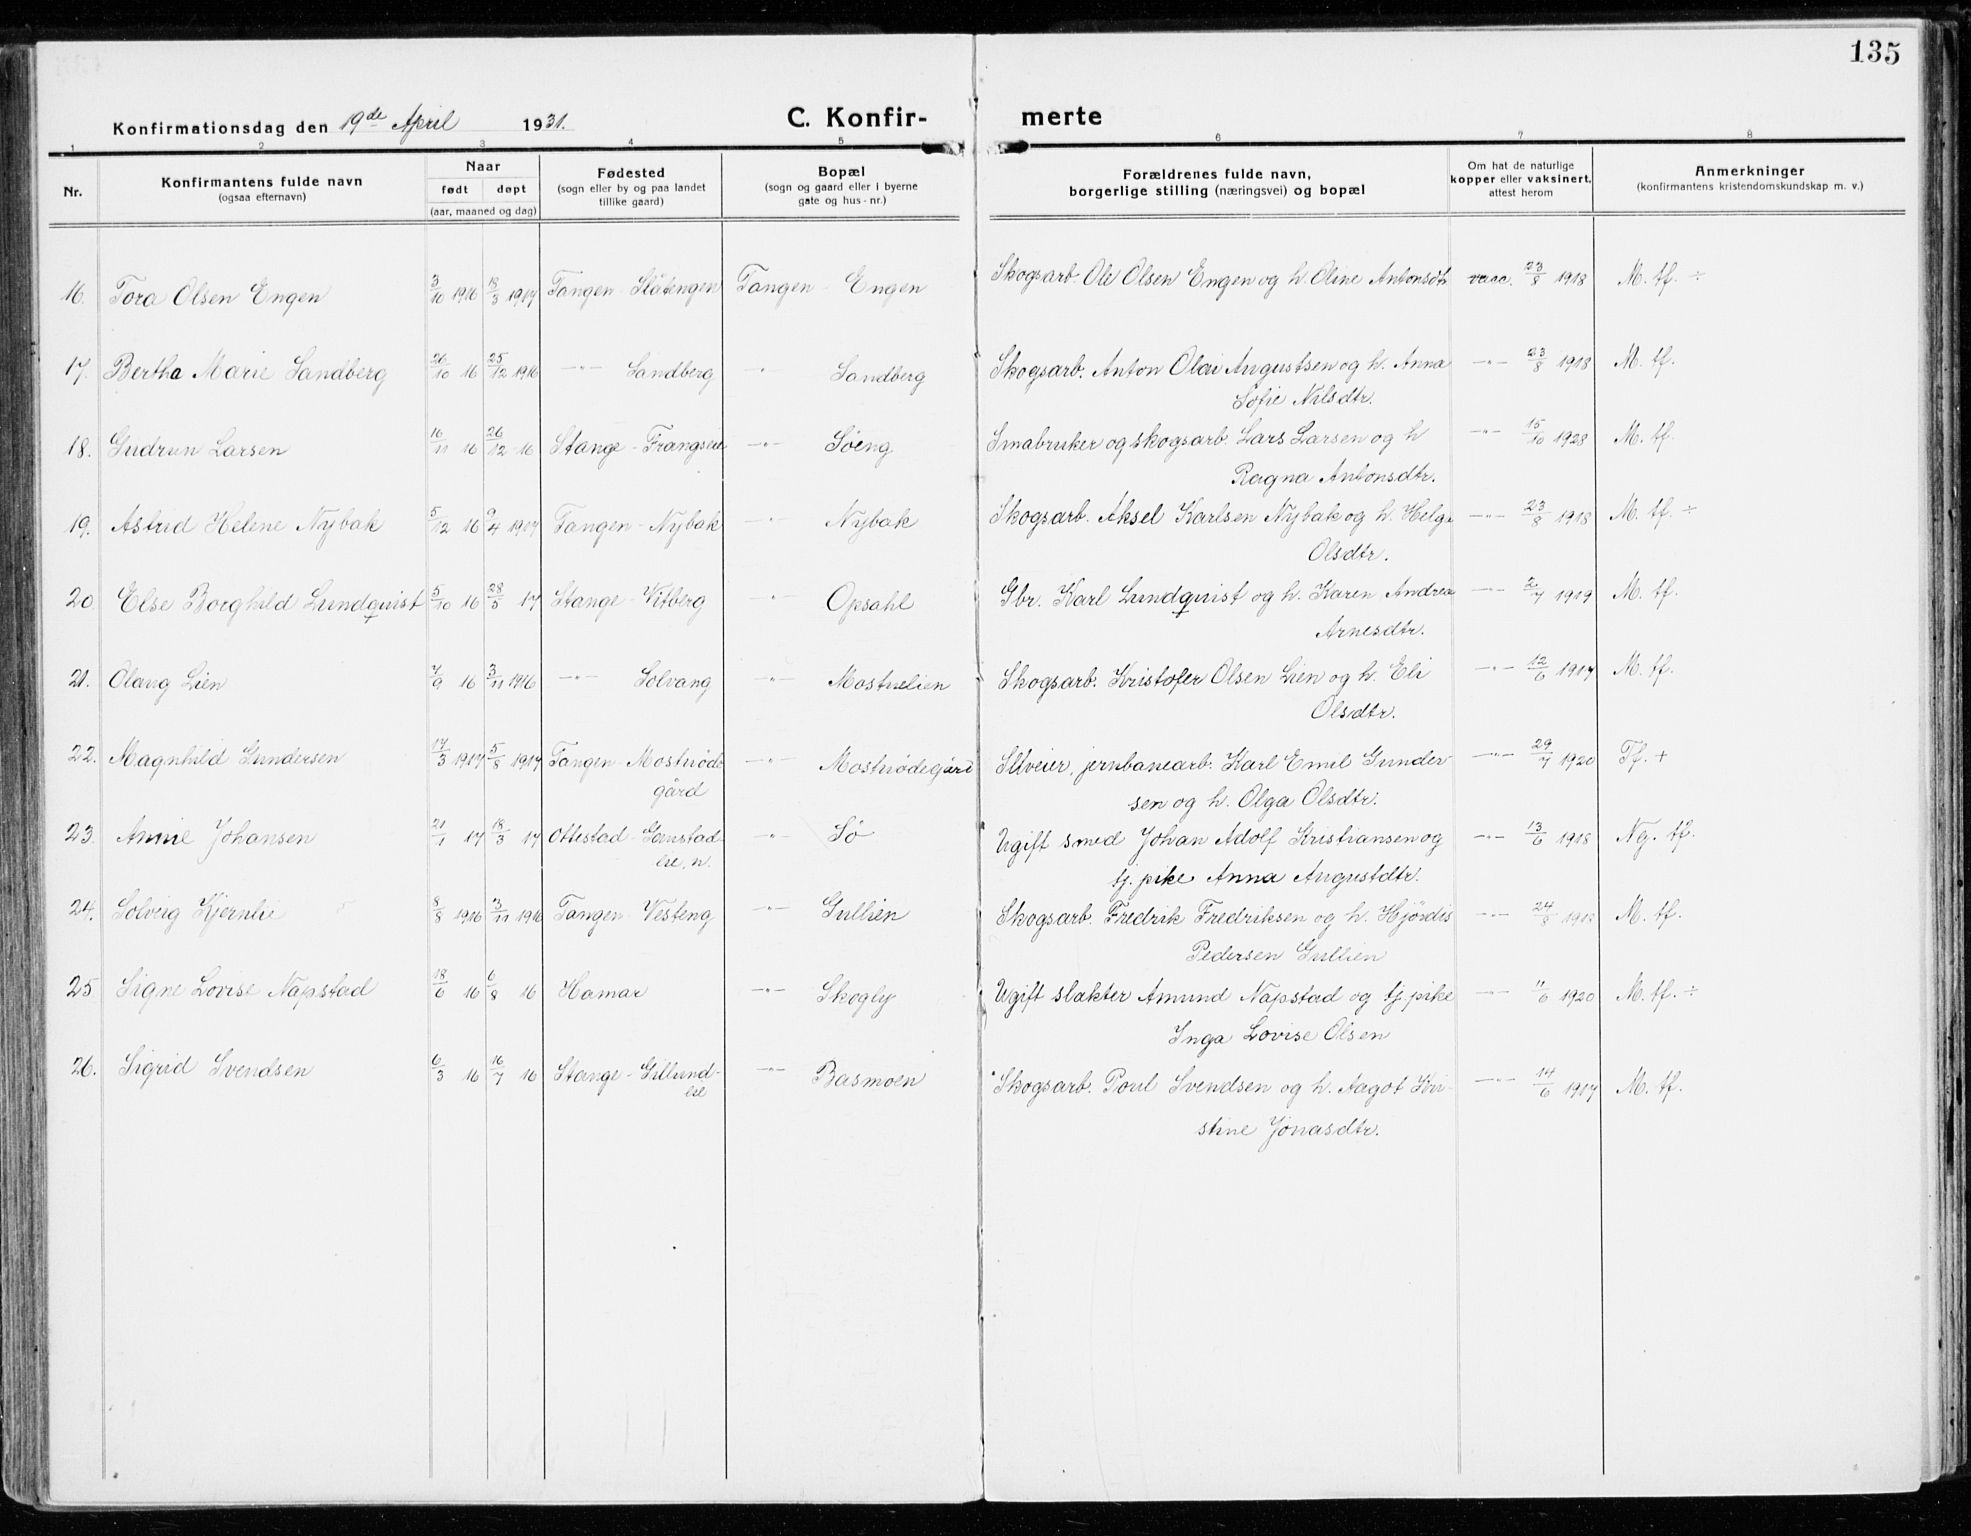 135
Konfirmationsdag den 19de April 1931.
C. Konfir-merte
1 2 3 4 5 6 7 8
Nr.
Konfirmantens fulde navn
(ogsaa efternavn)
Naar
født døpt
(aar, maaned og dag)
Fødested
(sogn eller by og paa landet
tillike gaard)
Bopæl
(sogn og gaard eller i byerne
gate og hus-nr.)
Forældrenes fulde navn,
borgerlige stilling (næringsvei) og bopæl
Om hat de naturlige
kopper eller vaksinert,
attest herom
Anmerkninger
(konfirmantens kristendomskundskap m. v.)
16. Tora Olsen Engen 3/10 1916 18/3 1917 Tangen - Slåtengen Tangen - Engen Skogsarb. Ole Olsen Engen og h. Oline Antonsdtr. vacc. 23/8 1918 M. tf. ÷
17. Bertha Marie Sandberg 26/10 16 25/12 1916 -"- Sandberg -"- Sandberg Skogsarb. Anton Olai Augustsen og h. Anna -"- 23/8 1918 M. tf.
Sofie Nilsdtr.
18. Gudrun Larsen 16/11 16 26/12 16 Stange - -"- Søeng Småbruker og skogsarb. Lars Larsen og h -"- 15/10 1928 M. tf.
Ragna Antonsdtr.
19. Astrid Helene Nybak 5/12 16 9/4 1917 Tangen - Nybak -"- Nybak Skogsarb. Aksel Karlsen Nybak og h. Helga -"- 23/8 1918 M. tf. ÷
Olsdtr.
20. Else Borghild Lundquist 5/10 16 28/5 17 Stange - Vitberg -"- Opsahl Gbr. Karl Lundquist og h. Karen Andrea -"- 2/7 1919 M. tf.
Arnesdtr.
21. Olaug Lien 7/9 16 3/11 1916 -"- Solvang -"- Mostuelien Skogsarb. Kristofer Olsen Lien og h. Eli -"- 12/6 1917 M. tf.
Olsdtr.
22. Magnhild Gundersen 17/3 1917 5/8 1917 Tangen - Mostuøde- -"- Mostuødegård Selveier, jernbanearb. Karl Emil Gunder- -"- 29/7 1920 Tf. +
gård sen og h. Olga Olsdtr.
23. Annie Johansen 21/1 17 18/3 17 Ottestad - Gamstad- -"- Sø Ugift smed Johan Adolf Kristiansen og -"- 13/6 1918 Ng. tf.
eie, n. tj. pike Anna Augustdtr.
24. Solveig Kjernlie 8/8 1916 3/11 1916 Tangen - Vesteng -"- Gullien Skogsarb. Fredrik Fredriksen og h. Hjørdis -"- 24/8 M. tf.
Pedersen Gullien
25. Signe Lovise Napstad 18/6 16 6/8 16 Hamar -"- Skogly Ugift slakter Amund Napstad og tj. pike -"- 11/6 1920 M. tf. ÷
Inga Lovise Olsen
26. Sigrid Svendsen 6/3 16 16/7 16 Stange - Gillund- -"- Basmoen Skogsarb. Poul Svendsen og h. Aagot Kri- -"- 14/6 1917 M. tf.
eie stine Jonasdtr.